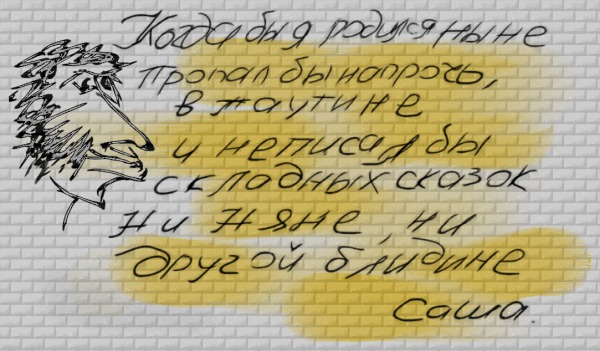 Когда бы я родился ныне
Пропал бы напрочь,
в паутине
и неписал бы
складных сказок
ни няне, ни
другой блидине
Саша.